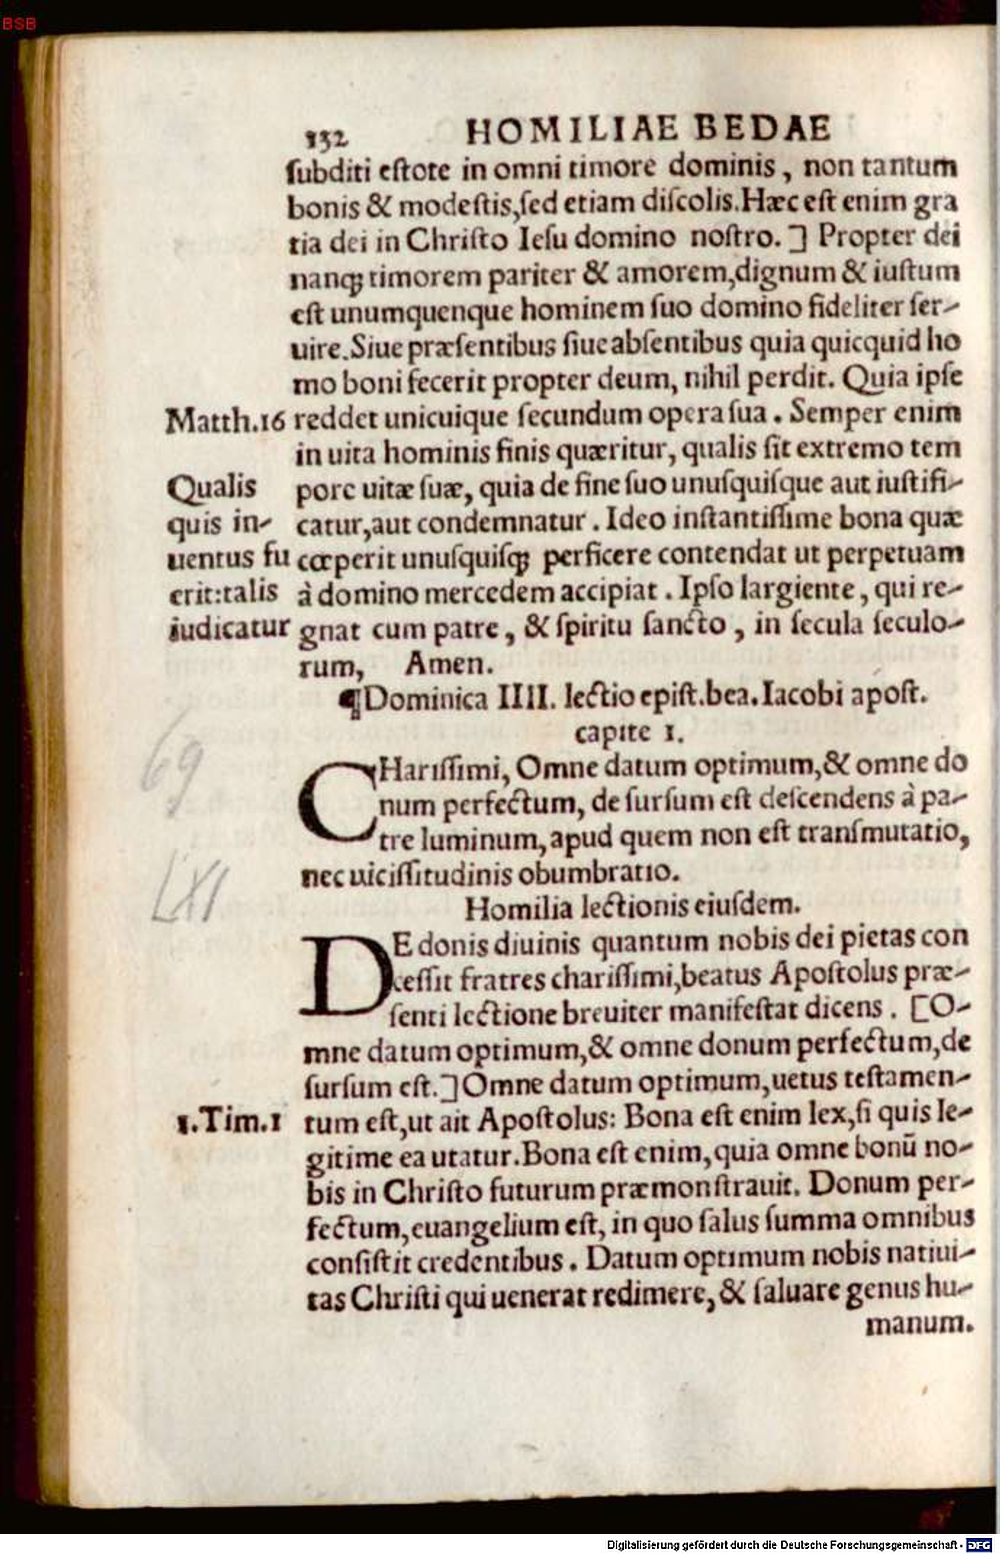 BSB
132 HOMILIAE BEDAE
ſubditi eſtote in omni timore dominis, non tantum
bonis & modeſtis,ſed etiam diſcolis.Hæc eſt enim gra
tia dei in Chriſto Ieſu domino noſtro.] Propter dei
nanqꝫ timorem pariter & amorem,dignum & iuſtum
eſt unumquenque hominem ſuo domino fideliter ſer-
uire.Siue præſentibus ſiue abſentibus quia quicquid ho
mo boni fecerit propter deum, nihil perdit. Quia ipſe
Matth.16 reddet unicuique ſecundum opera ſua. Semper enim
in uita hominis finis quæritur, qualis ſit extremo tem
Qualis pore uitæ ſuæ, quia de fine ſuo unuſquiſque aut iuſtifi-
quis in- catur,aut condemnatur. Ideo inſtantiſſime bona quæ
uentus fu cœperit unuſquiſqꝫ perficere contendat ut perpetuam
erit:talis à domino mercedem accipiat. Ipſo largiente, qui re-
iudicatur gnat cum patre, & ſpiritu ſancto, in ſecula ſeculo-
rum, Amen.
¶Dominica IIII. lectio epiſt.bea.Iacobi apoſt.
capite 1.
69
CHariſſimi, Omne datum optimum,& omne do
num perfectum, de ſurſum eſt deſcendens à pa-
tre luminum, apud quem non eſt tranſmutatio,
LXI
nec uiciſſitudinis obumbratio.
Homilia lectionis eiuſdem.
DE donis diuinis quantum nobis dei pietas con
ceſſit fratres chariſſimi,beatus Apoſtolus præ-
ſenti lectione breuiter manifeſtat dicens. [O-
mne datum optimum,& omne donum perfectum,de
ſurſum eſt.] Omne datum optimum,uetus teſtamen-
1.Tim.1 tum eſt,ut ait Apoſtolus: Bona eſt enim lex,ſi quis le-
gitime ea utatur.Bona eſt enim, quia omne bonũ no-
bis in Chriſto futurum præmonſtrauit. Donum per-
fectum,euangelium eſt, in quo ſalus ſumma omnibus
conſiſtit credentibus. Datum optimum nobis natiui-
tas Chriſti qui uenerat redimere, & ſaluare genus hu-
manum.
Digitalisierung gefördert durch die Deutsche Forschungsgemeinschaft - DFG